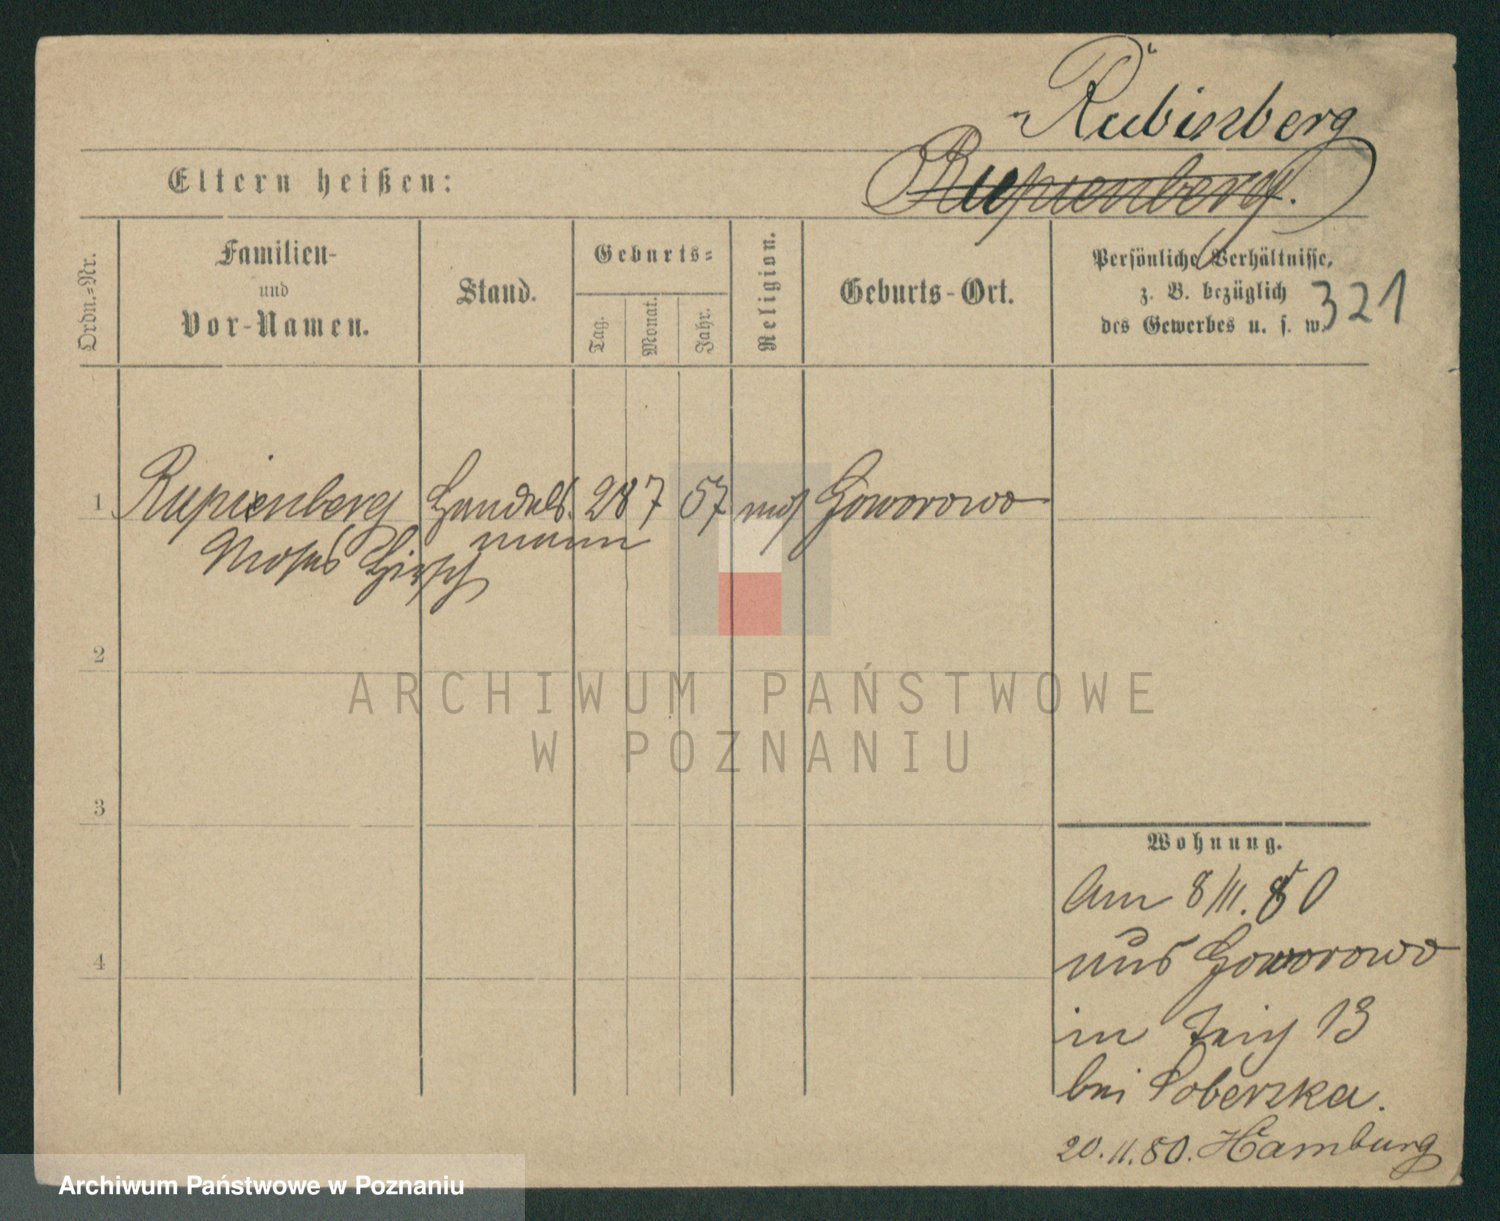 Rubinberg
Rupienberg.
Eltern heißen:
Ordn.=Nr.
Familien-
und
Vor-Namen.
Stand.
Geburts=
Tag.
Monat.
Jahr.
Religion.
Geburts-Ort.
Persönliche Verhältnisse,
z. B. bezüglich
des Gewerbes u. s. w.
321
1 Rupienberg Handels. 28 7 57 mos Goworowo
Moses Hirsch mann
2
ARCHIWUM PAŃSTWOWE
W POZNANIU
3
Wohnung.
Am 8/III. 80
aus Goworowo
4
in 13
bei
20.11.80. Hamburg
Archiwum Państwowe w Poznaniu